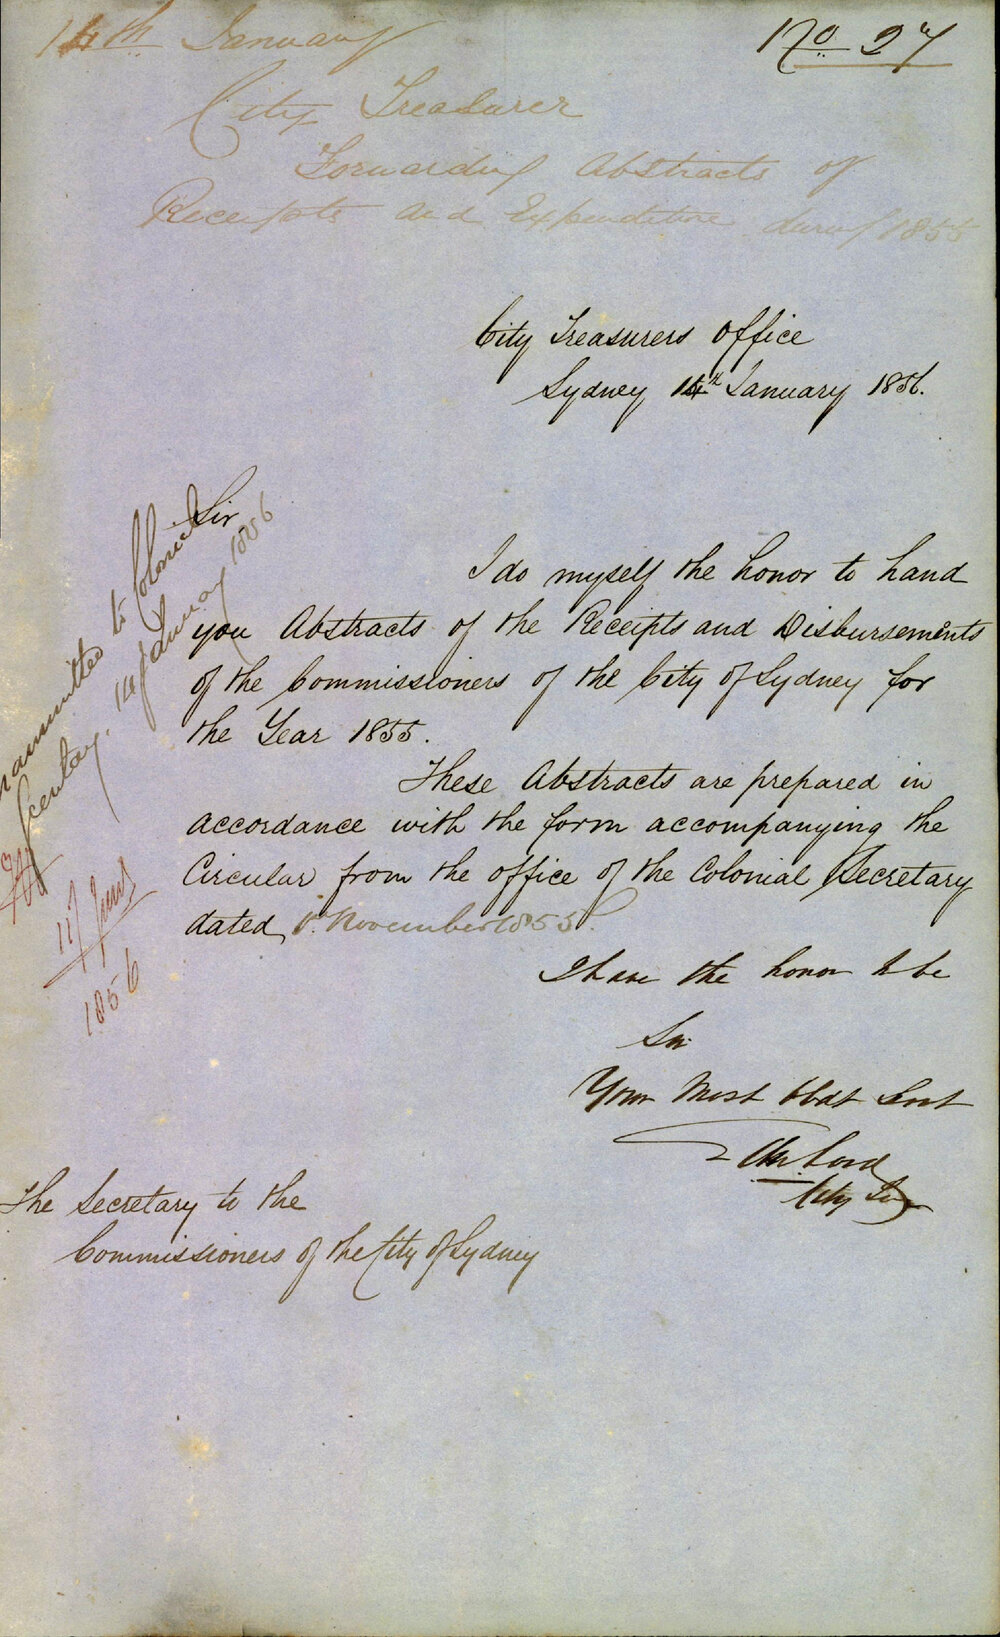 14th January
No 27
City Treasurer
Forwarding Abstracts of
Receipts and Expenditure during 1855
City Treasurers Office
Sydney 14th January 1856.
Sir
I do myself the honor to hand
you Abstracts of the Receipts and Disbursements
of the Commissioners of the City of Sydney for
the Year 1855.
These Abstracts are prepared in
accordance with the form accompanying the
Circular from the office of the Colonial Secretary
dated November 1855.
I have the honor to be
Sir
Your Most Obdt Servt
City
The Secretary to the
Commissioners of the City of Sydney
ransmitted to Colonial
Secretary. 14 January 1856
1856